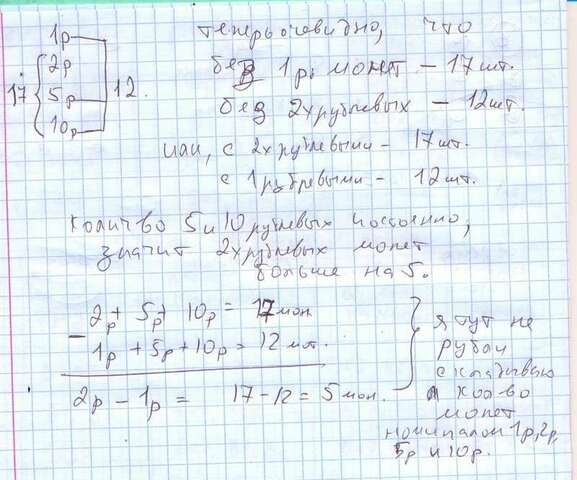 1р
2р
17 5р 12.
10р
теперь очевидно, что
без 1р. монет – 17 шт.
без 2х рублевых – 12 шт.
или, с 2х рублевыми – 17 шт.
с 1 рублевыми – 12 шт.
количво 5 и 10 рублевых постоянно,
значит 2х рублевых монет
больше на 5.
2р + 5р + 10р = 17 мон
– 1р + 5р + 10р = 12 мт.
2р – 1р = 17 – 12 = 5 мон.
я тут не
рубли
складываю
а кол-во
монет
номиналом 1р, 2р,
5р и 10р.